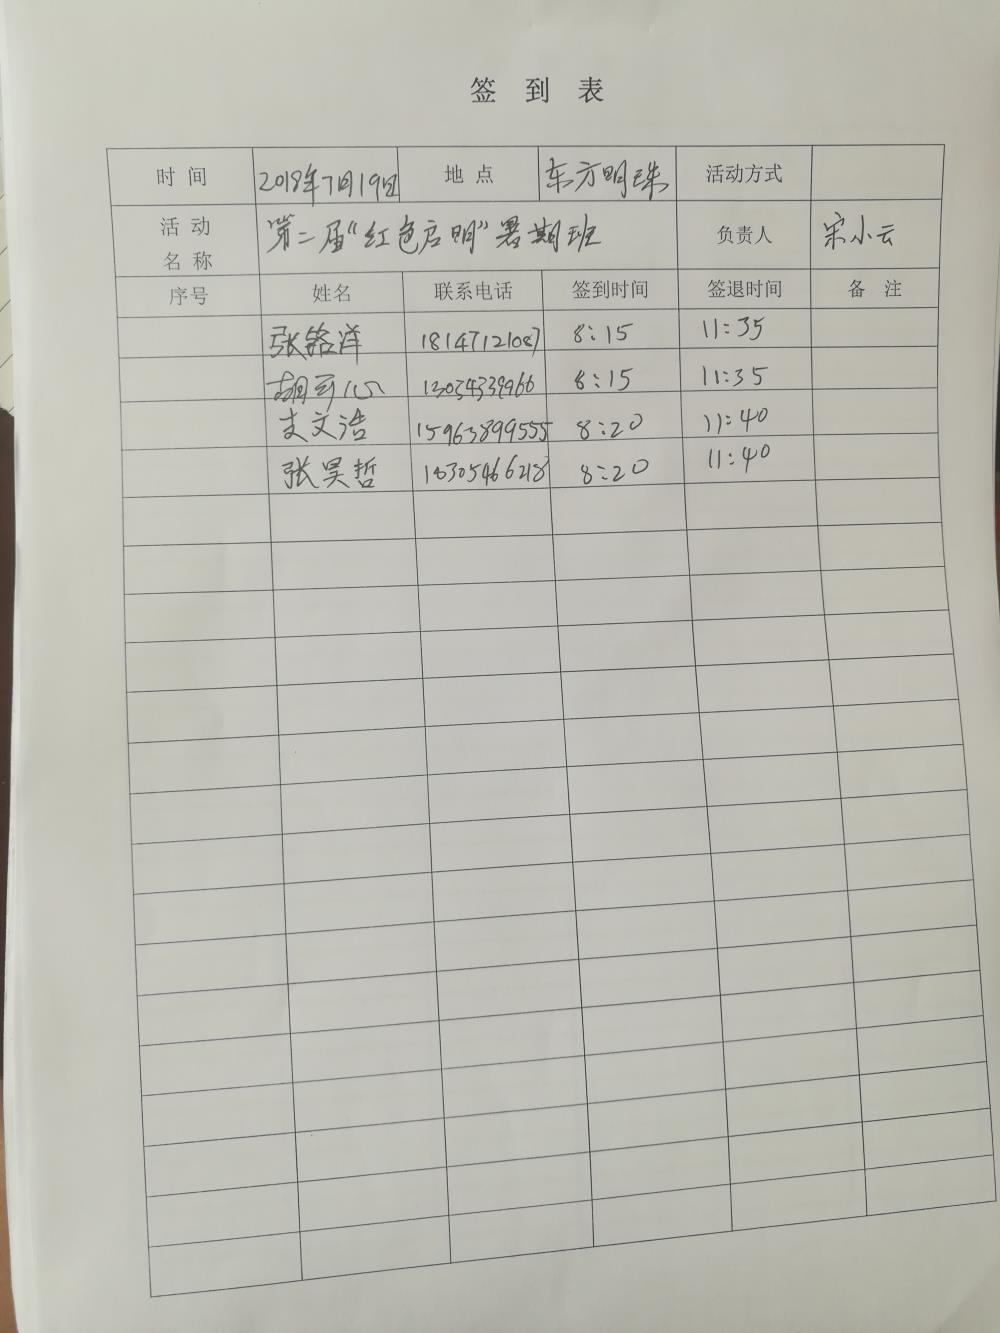 签到表
时间 2018年7月19日 地点 东方明珠 活动方式
活动名称 第二届“红色启明”暑期班 负责人 宋小云
序号 姓名 联系电话 签到时间 签退时间 备注
张铭洋 18147121087 8:15 11:35
胡可心 13034339966 8:15 11:35
支文浩 15963899555 8:20 11:40
张昊哲 18305466218 8:20 11:40